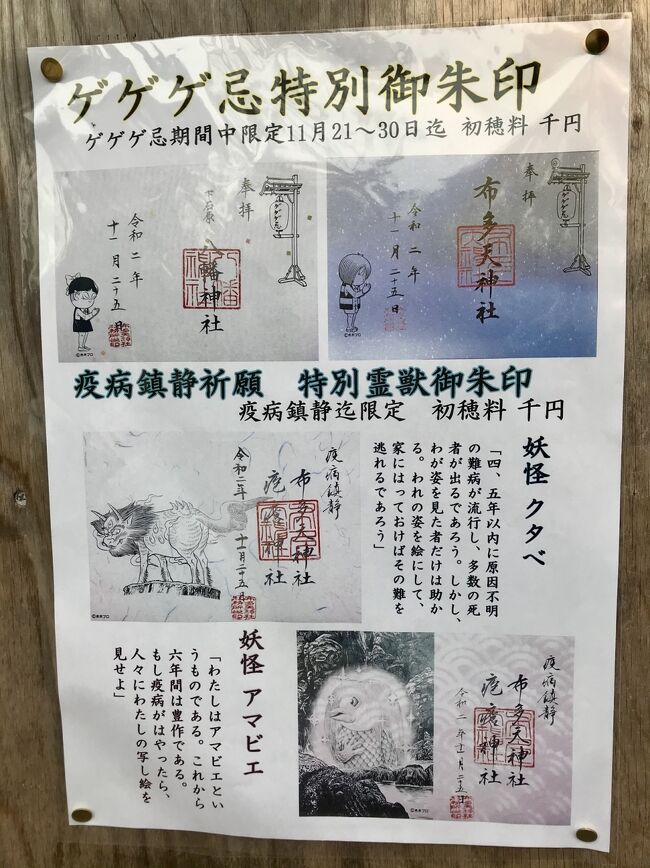 ゲゲゲ忌特別御朱印
ゲゲゲ忌期間中限定11月21〜30日迄 初穂料 千円
奉拝
下石原 八幡神社
令和二年
十一月二十五日
©水木プロ
奉拝
ゲゲゲ忌
布多天神社
令和二年
十一月二十五日
©水木プロ
疫病鎮静祈願 特別霊獣御朱印
疫病鎮静迄限定 初穂料 千円
妖怪 クタベ
「四、五年以内に原因不明
の難病が流行し、多数の死
者が出るであろう。しかし、
わが姿を見た者だけは助か
る。われの姿を絵にして、
家にはっておけばその難を
逃れるであろう」
疫病鎮静
布多天神社
疱瘡神社
令和二年 十一月二十五日
©水木プロ
妖怪 アマビエ
「わたしはアマビエとい
うものである。これから
六年間は豊作である。
もし疫病がはやったら、
人々にわたしの写し絵を
見せよ」
疫病鎮静
布多天神社
疱瘡神社
令和二年十一月二十五日
©水木プロ